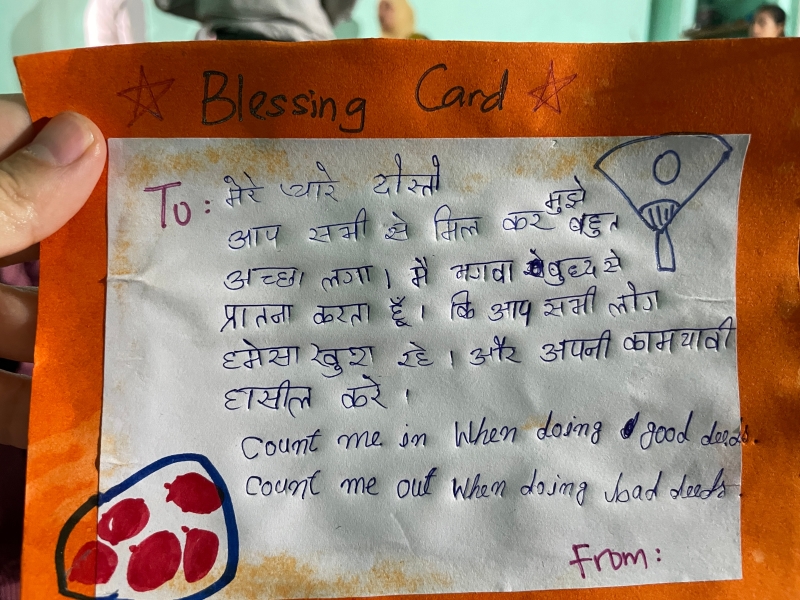 Blessing Card
To: मेरे प्यारे दोस्तो
आप सभी से मिल कर मुझे बहुत
अच्छा लगा। मै भगवा बुध्द से
प्रातना करता हूँ। कि आप सभी लोग
हमेसा खुश रहे। और अपनी कामयावी
हासील करे।
Count me in When doing good deeds.
Count me out When doing bad deeds.
From: